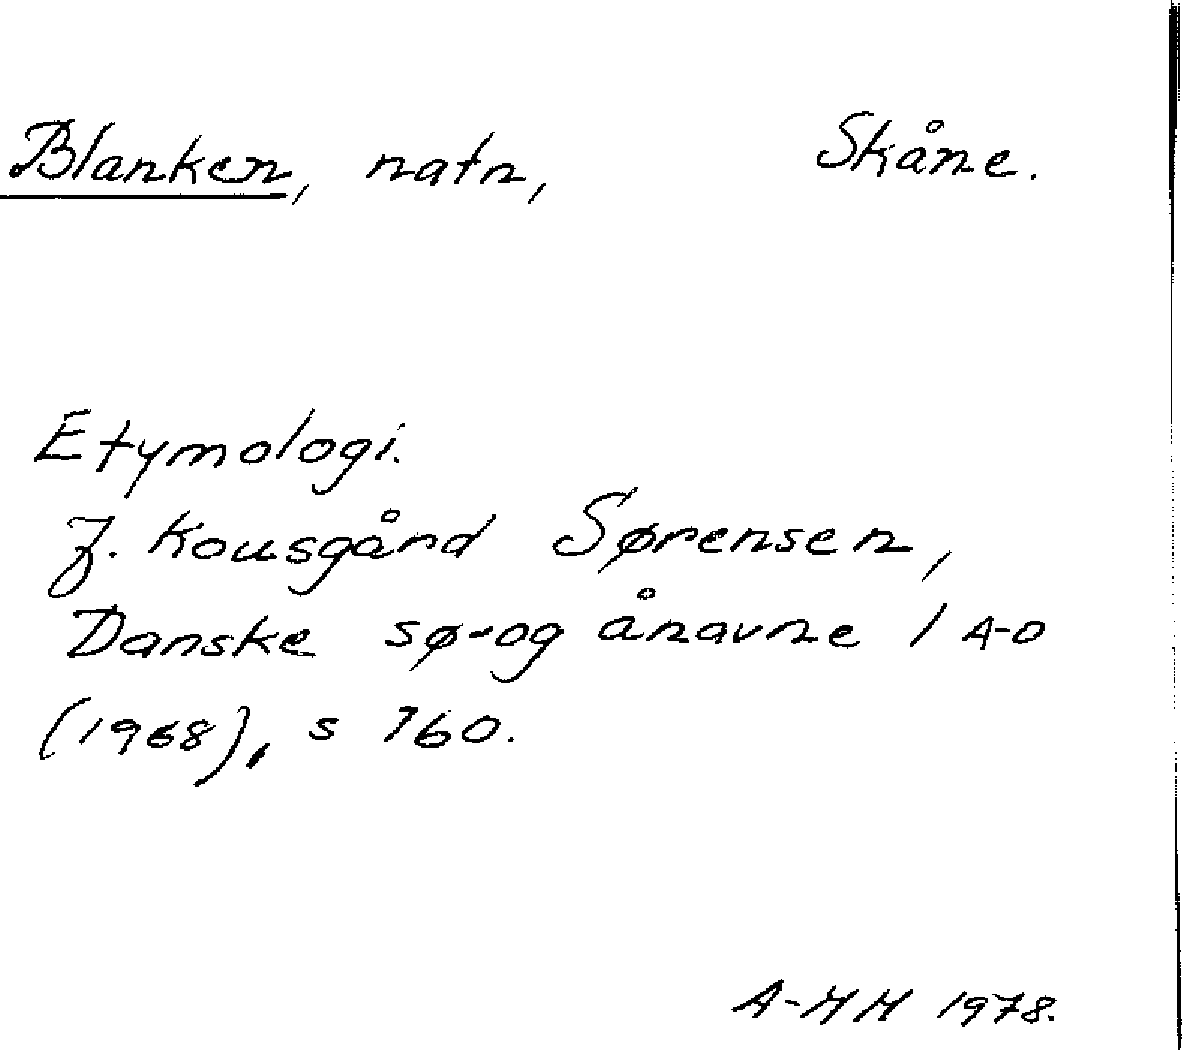 Blanken, natn, Skåne.
Etymologi.
J. Kousgård Sørensen,
Danske sø-og ånavne 1 A-D
(1968), s 160.
A-MH 1978.